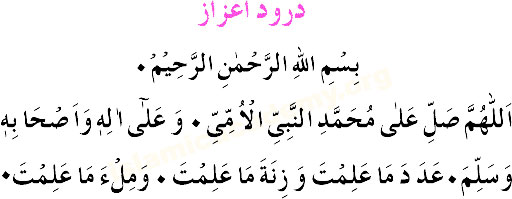 درود اعزاز
بِسْمِ اللهِ الرَّحْمٰنِ الرَّحِيْمِ۰
اَللّٰهُمَّ صَلِّ عَلٰى مُحَمَّدِ النَّبِيِّ الْاُمِّيِّ۰ وَ عَلٰٓى اٰلِهٖ وَاَصْحَابِهٖ
وَسَلِّمَ۰ عَدَدَ مَا عَلِمْتَ وَ زِنَةَ مَا عَلِمْتَ ۰ وَمِلْءَ مَا عَلِمْتَ۰